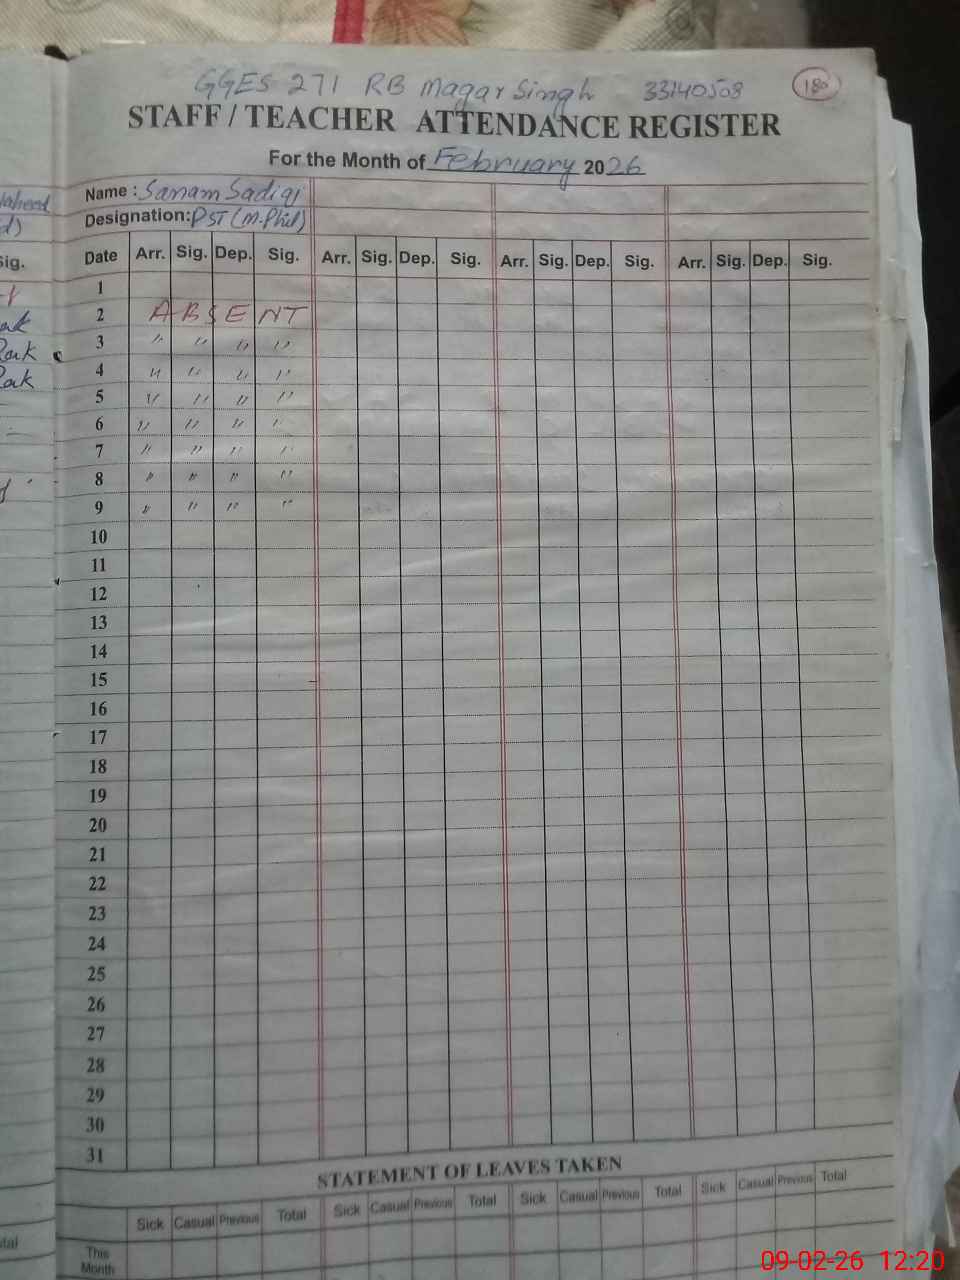 GGES 271 RB Magar Singh 33140503 180
STAFF / TEACHER ATTENDANCE REGISTER
For the Month of February 2026
Name : Sanam Sadiqi
Designation: PST (M.Phil)
Date Arr. Sig. Dep. Sig. Arr. Sig. Dep. Sig. Arr. Sig. Dep. Sig. Arr. Sig. Dep. Sig.
1
2 ABSENT
3 " " " "
4 " " " "
5 " " " "
6 " " " "
7 " " " "
8 " " " "
9 " " " "
10
11
12
13
14
15
16
17
18
19
20
21
22
23
24
25
26
27
28
29
30
31
STATEMENT OF LEAVES TAKEN
Sick Casual Previous Total Sick Casual Previous Total Sick Casual Previous Total Sick Casual Previous Total
This
Month
09-02-26 12:20